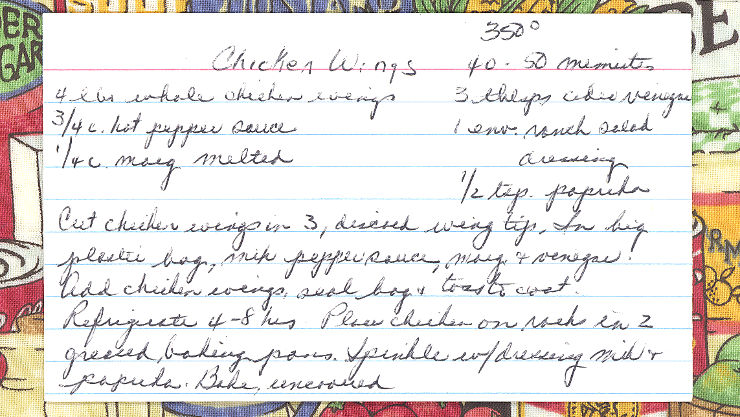 350°
Chicken Wings 40-50 minutes
4 lbs whole chicken wings 3 tblsps cider vinegar
3/4 c. hot pepper sauce 1 env. ranch salad
1/4 c. marg melted dressing
1/2 tsp. paprika
Cut chicken wings in 3, discard wing tip. In big
plastic bag, mix pepper sauce, marg + vinegar.
Add chicken wings, seal bag + toss to coat.
Refrigerate 4-8 hrs Place chicken on racks in 2
greased baking pans. Sprinkle w/dressing mix +
paprika. Bake, uncovered
ER
GAR